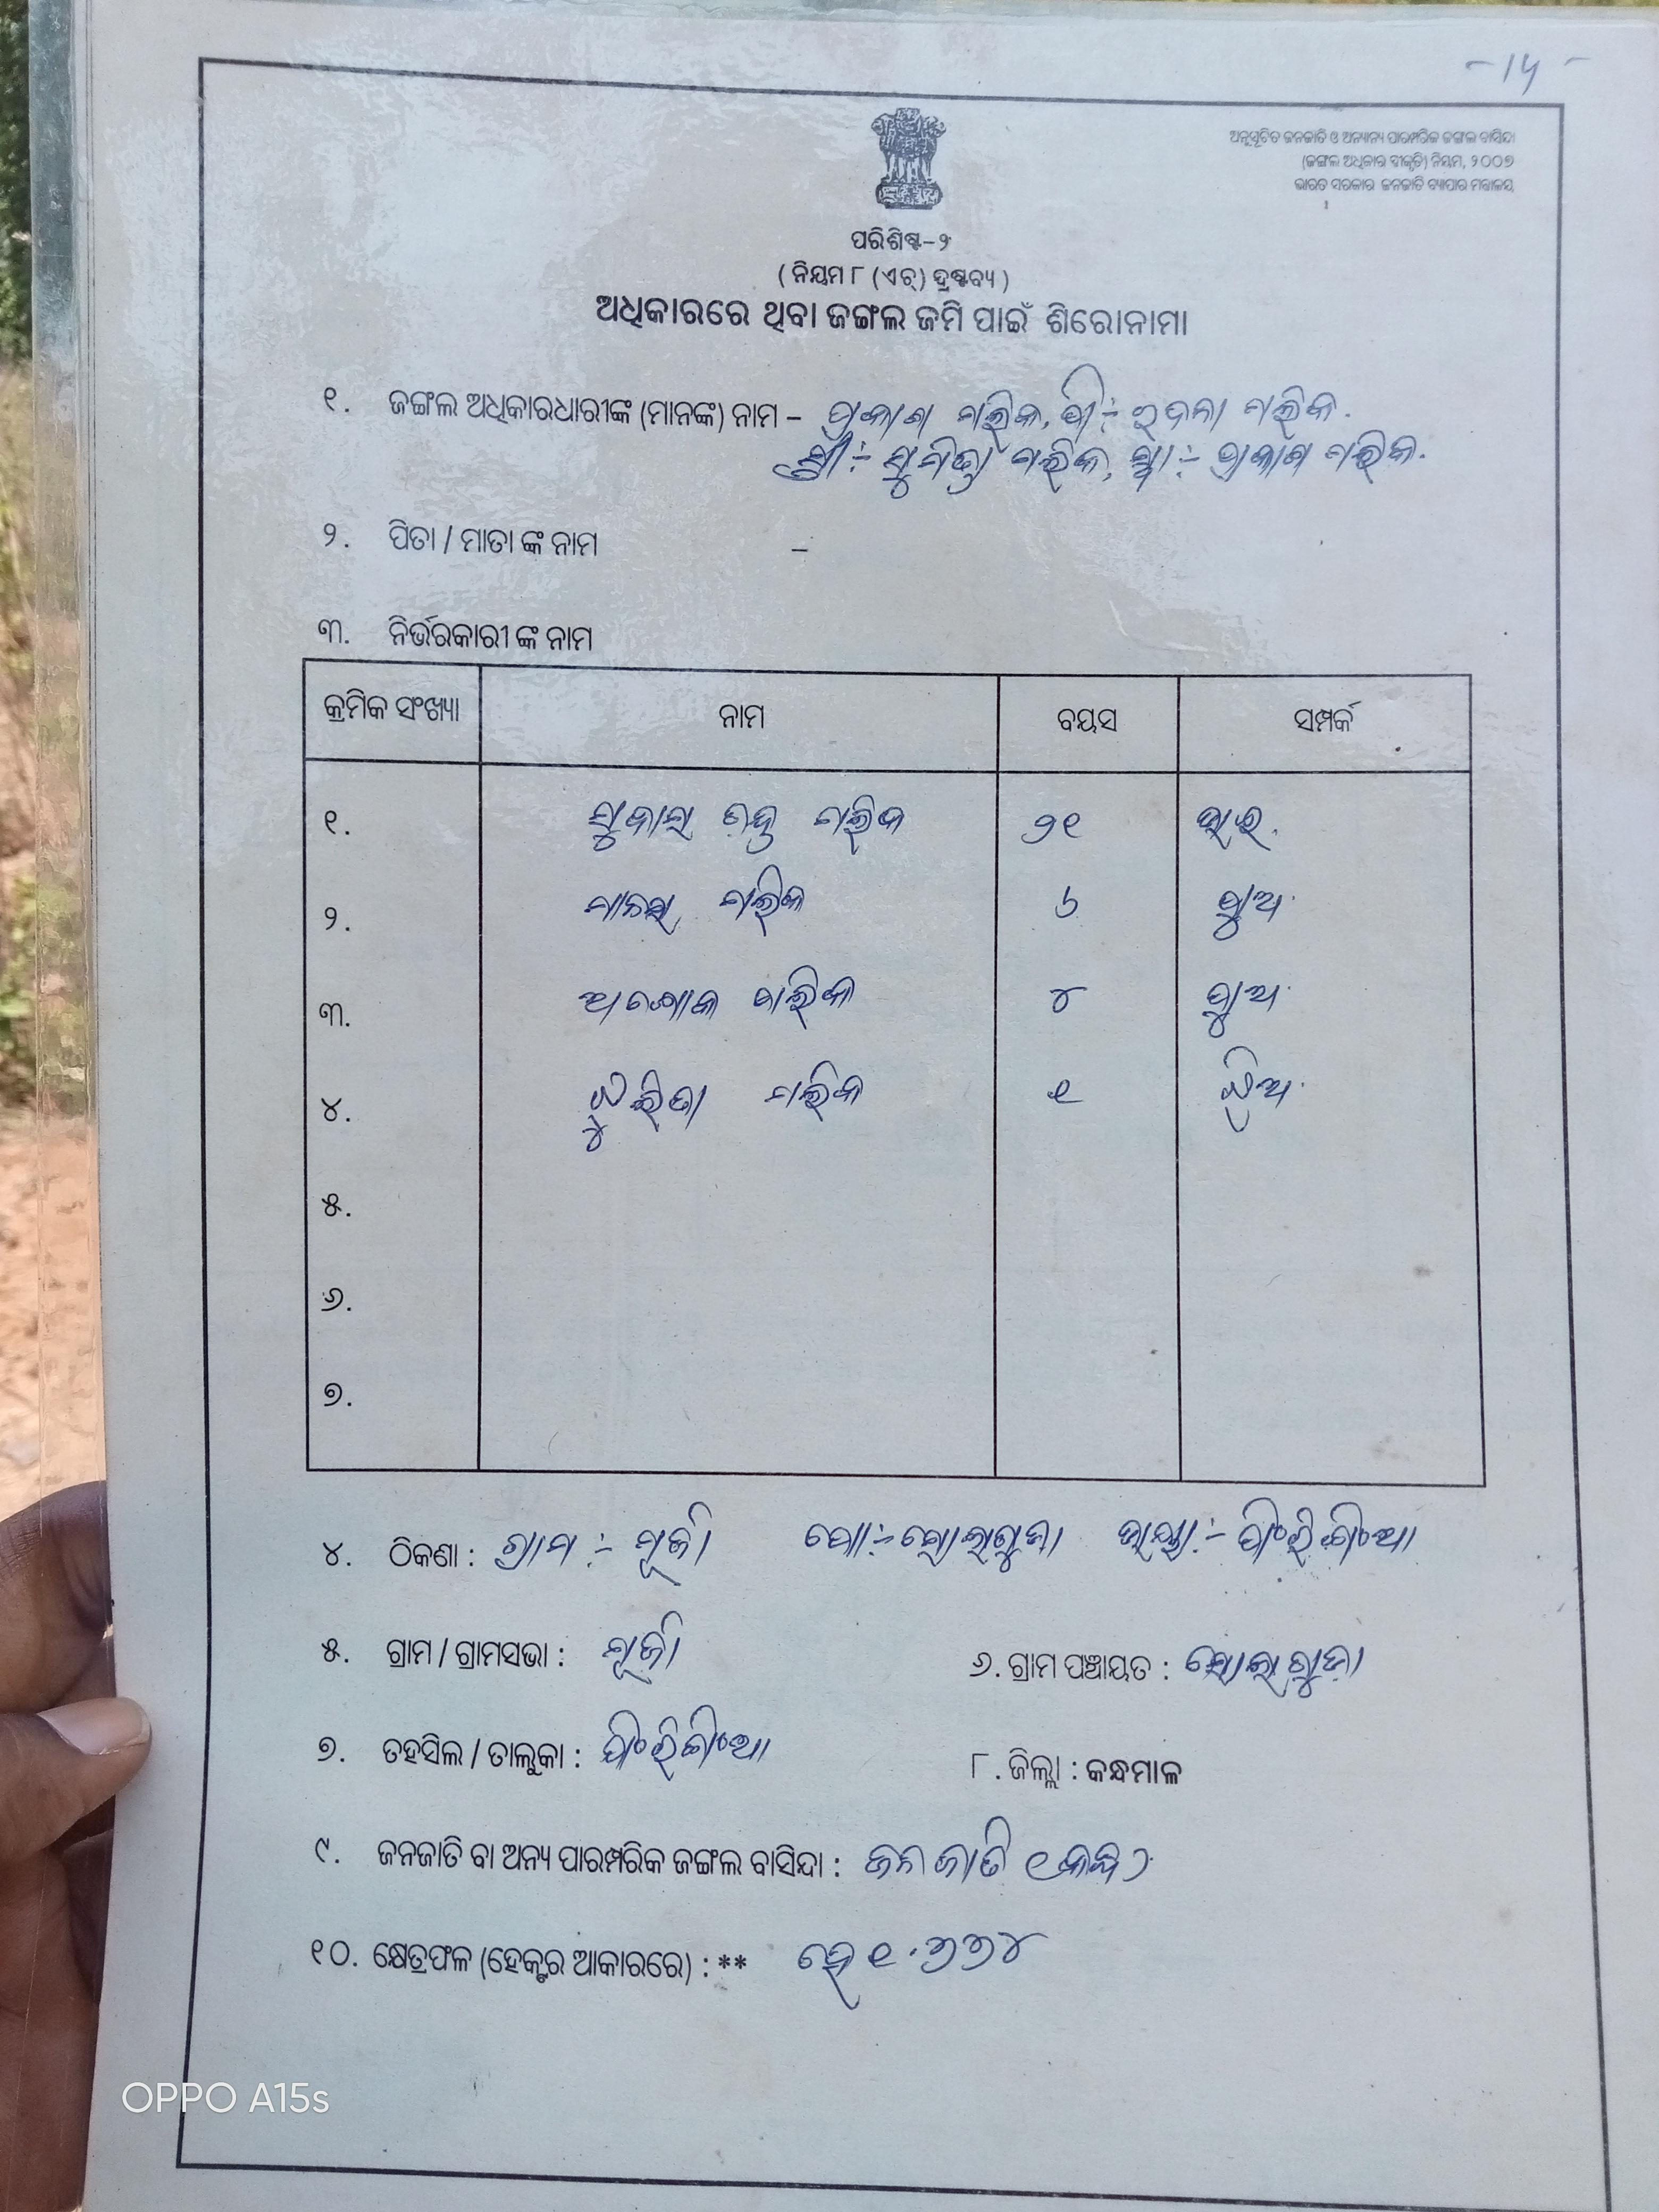 -14-
ଅନୁସୂଚିତ ଜନଜାତି ଓ ଅନ୍ୟାନ୍ୟ ପାରମ୍ପରିକ ଜଙ୍ଗଲ ବାସିନ୍ଦା
(ଜଙ୍ଗଲ ଅଧିକାର ସ୍ୱୀକୃତି) ନିୟମ, ୨୦୦୭
ଭାରତ ସରକାର ଜନଜାତି ବ୍ୟାପାର ମନ୍ତ୍ରାଳୟ
ପରିଶିଷ୍ଟ-୨
( ନିୟମ ୮ (ଏଚ୍) ଦ୍ରଷ୍ଟବ୍ୟ )
ଅଧିକାରରେ ଥିବା ଜଙ୍ଗଲ ଜମି ପାଇଁ ଶିରୋନାମା
୧. ଜଙ୍ଗଲ ଅଧିକାରଧାରୀଙ୍କ (ମାନଙ୍କ) ନାମ – ପ୍ରକାଶ ମଲିକ, ପି:- ମଲିକ.
ସ୍ତ୍ରୀ:- ସୁମିତ୍ରା ମଲିକ, ସ୍ୱା:- ପ୍ରକାଶ ମଲିକ.
୨. ପିତା / ମାତା ଙ୍କ ନାମ –
୩. ନିର୍ଭରକାରୀ ଙ୍କ ନାମ
କ୍ରମିକ ସଂଖ୍ୟା ନାମ ବୟସ ସମ୍ପର୍କ
୧. ଚନ୍ଦ୍ର ମଲିକ ୨୧ ଭାଇ.
୨. ମାନସ ମଲିକ ୬ ପୁଅ
୩. ଅଶୋକ ମଲିକ ୪ ପୁଅ
୪. ମଲିକ ୧ ଝିଅ
୫.
୬.
୭.
୪. ଠିକଣା : ଗ୍ରାମ :- ପୋ:- ଭାୟା:- ଫିରିଙ୍ଗିଆ
୫. ଗ୍ରାମ / ଗ୍ରାମସଭା :
୬. ଗ୍ରାମ ପଞ୍ଚାୟତ :
୭. ତହସିଲ / ତାଲୁକା : ଫିରିଙ୍ଗିଆ
୮. ଜିଲ୍ଲା : କନ୍ଧମାଳ
୯. ଜନଜାତି ବା ଅନ୍ୟ ପାରମ୍ପରିକ ଜଙ୍ଗଲ ବାସିନ୍ଦା : ଜନଜାତି (କନ୍ଧ)
୧୦. କ୍ଷେତ୍ରଫଳ (ହେକ୍ଟର ଆକାରରେ) : ** ହେ ୧.୭୭୪
OPPO A15s